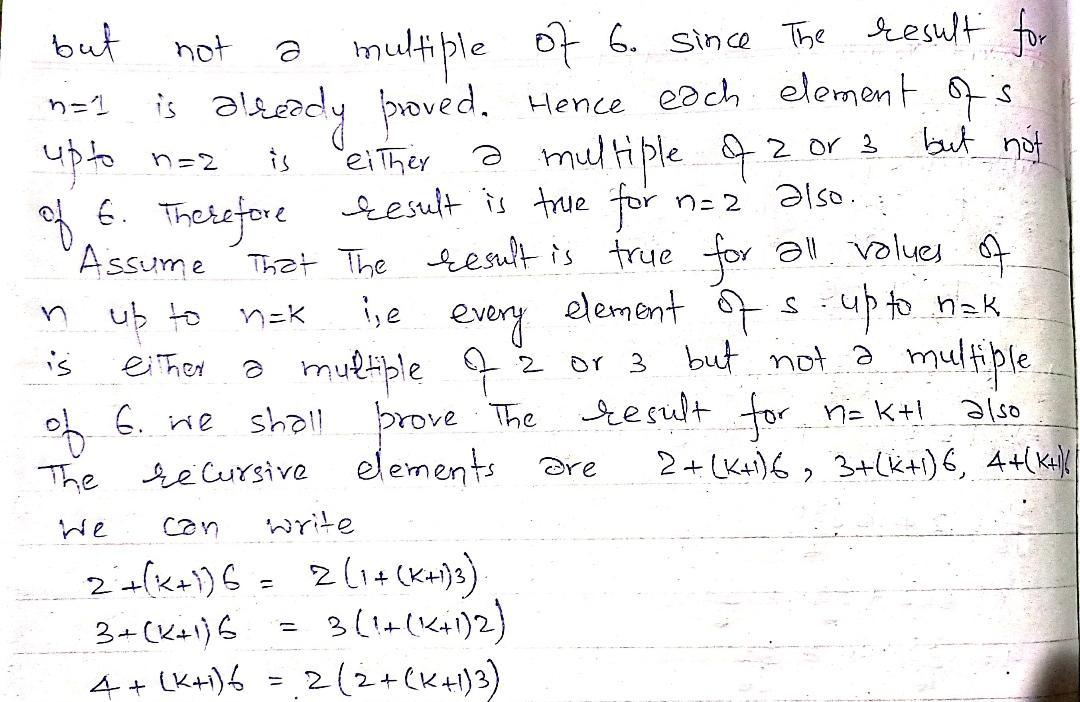 but not a multiple of 6. since The result for
n=1 is already proved. Hence each element of s
upto n=2 is either a multiple of 2 or 3 but not
of 6. Therefore result is true for n=2 also.
Assume That The result is true for all values of
n up to n=k i,e every element of s up to n=k
is either a multiple of 2 or 3 but not a multiple
of 6. we shall prove The result for n=k+1 also
The recursive elements are 2+(k+1)6, 3+(k+1)6, 4+(k+1)6
We can write
2+(k+1)6 = 2(1+(k+1)3)
3+(k+1)6 = 3(1+(k+1)2)
4+(k+1)6 = 2(2+(k+1)3)